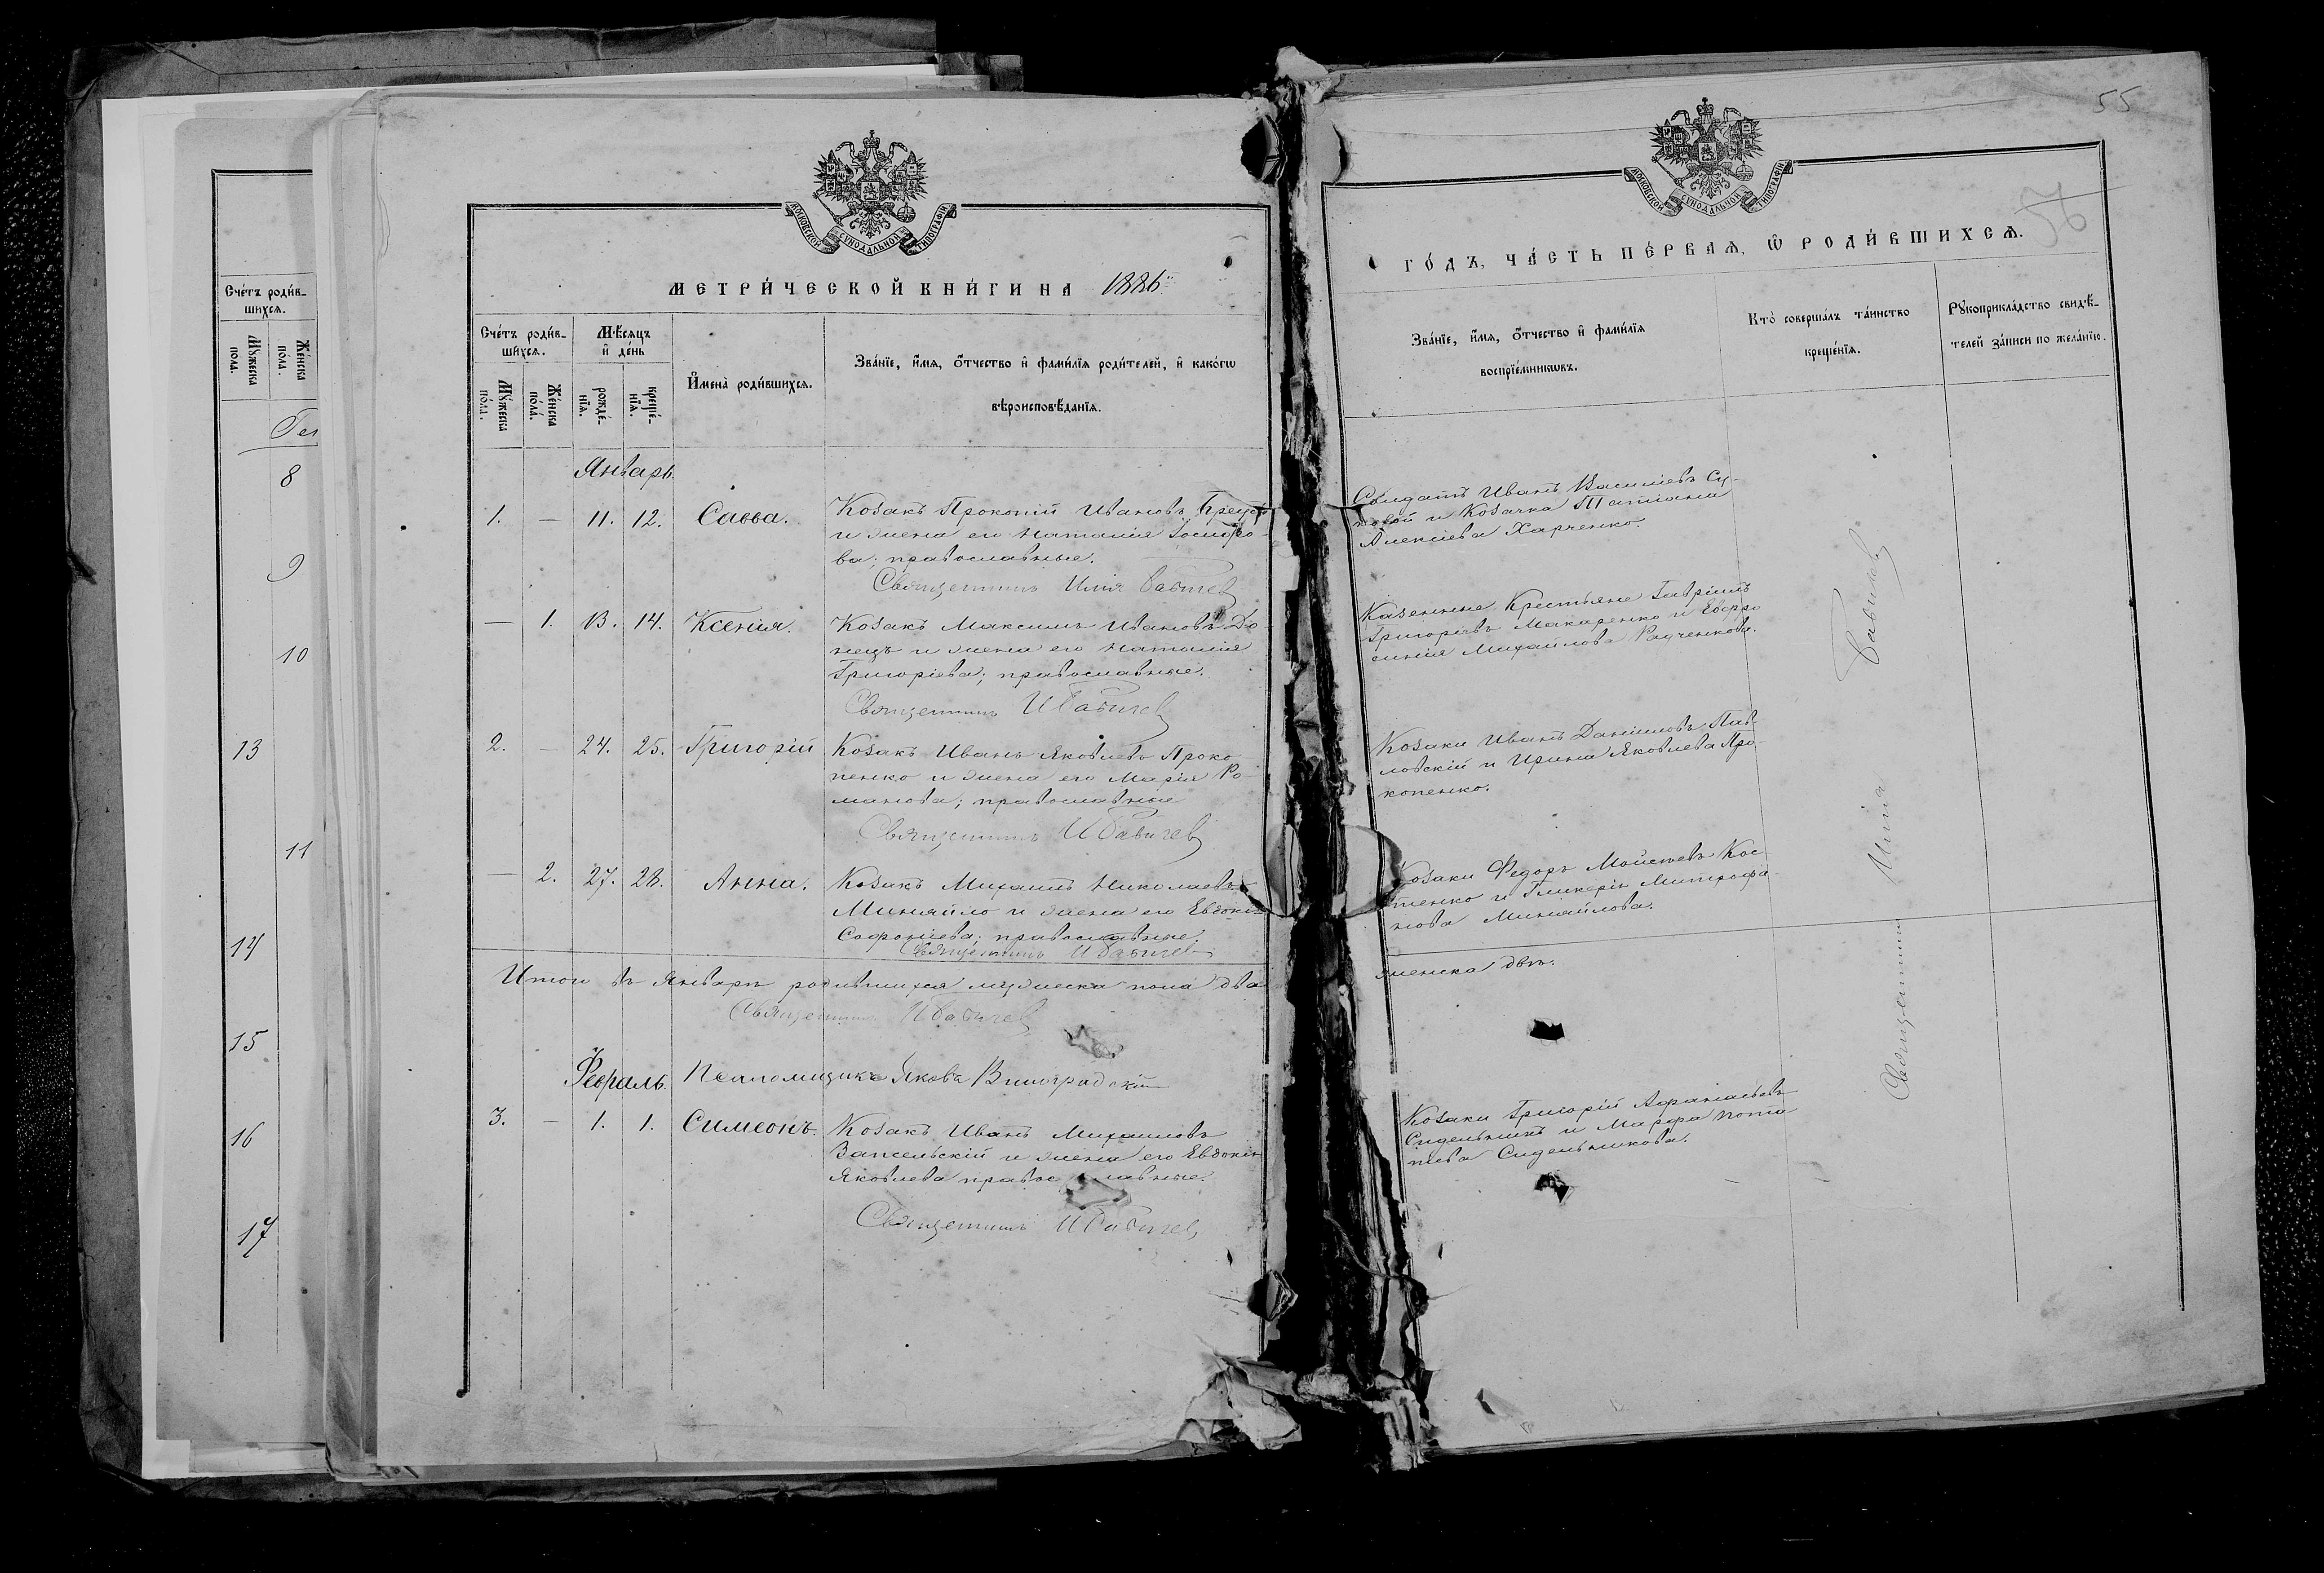 Счетъ родив-
шихся.
Мужеска пола.
Женска пола.
8
9
10
13
11
14
15
16
17
МОСКОВСКОЙ СѴНОДАЛЬНОЙ ТИПОГРАФІИ
МЕТРИ́ЧЕСКОЙ КНИ́ГИ НА 1886
Счéтъ роди́в-
шихся.
Мꙋ́жеска пóла.
Жéнска пóла.
Мѣ́сяцъ и҆ дéнь
рождé-
нїѧ.
крещé-
нїѧ.
И҆менà роди́вшихсѧ.
Звáнїе, и҆́мѧ, ѻ҆́тчество и҆ фами́лїѧ роди́телей, и҆ какóгѡ
вѣроисповѣ́данїѧ.
Январь.
1. — 11. 12. Савва.
Козакъ Прокопій Ивановъ
и жена его Наталія
ва; православные.
Священникъ Илія Бабичев
— 1. 13. 14. Ксенія.
Козакъ Максимъ Ивановъ До-
нецъ и жена его Наталія
Григоріева; православные.
Священникъ И Бабичев
2. — 24. 25. Григорій
Козакъ Иванъ Яковлевъ Проко
пенко и жена его Марія Ро-
манова; православные
Священникъ И Бабичев
— 2. 27. 28. Анна.
Козакъ Михаилъ Николаевъ
Миняйло и жена его Евдокія
Софоніева; православные.
Священникъ И Бабичев
Итого въ Январѣ родившихся мужеска пола два
Священникъ И Бабичев
Февраль. Псаломщикъ Яковъ Виноградскій
3. — 1. 1. Симеонъ.
Козакъ Иванъ Михаиловъ
Запсельскій и жена его Евдокія
Яковлева православные.
Священникъ И Бабичев
55
56
МОСКОВСКОЙ СѴНОДАЛЬНОЙ ТИПОГРАФІИ
ГÓДЪ, ЧÁСТЬ ПÉРВАѦ, Ѽ РОДИ́ВШИХСѦ.
Звáнїе, и҆́мѧ, ѻ҆́тчество и҆ фами́лїѧ
воспрїéмникѡвъ.
Ктò совершáлъ тáинство
крещéнїѧ.
Рꙋкоприклáдство свидѣ́-
телей зáписи по желáнїю.
Солдатъ Иванъ Василіевъ Су-
ковой и Козачка Татіана
Алексіева Харченко.
Казенные Крестьяне Гавріилъ
Григоріевъ Макаренко и Евфро
синія Михайлова Радченкова.
Козаки Иванъ Даниловъ Пав-
ловскій и Ирина Яковлева Про-
копенко.
Козаки Федоръ Моисеевъ Кос
тенко и Гликерія Митрофа-
нова Миняйлова.
женска двѣ.
Козаки Григорій Афанасьевъ
Сидельникъ и Марфа Пота
піева Сидельникова.
Священникъ Илія Бабичев